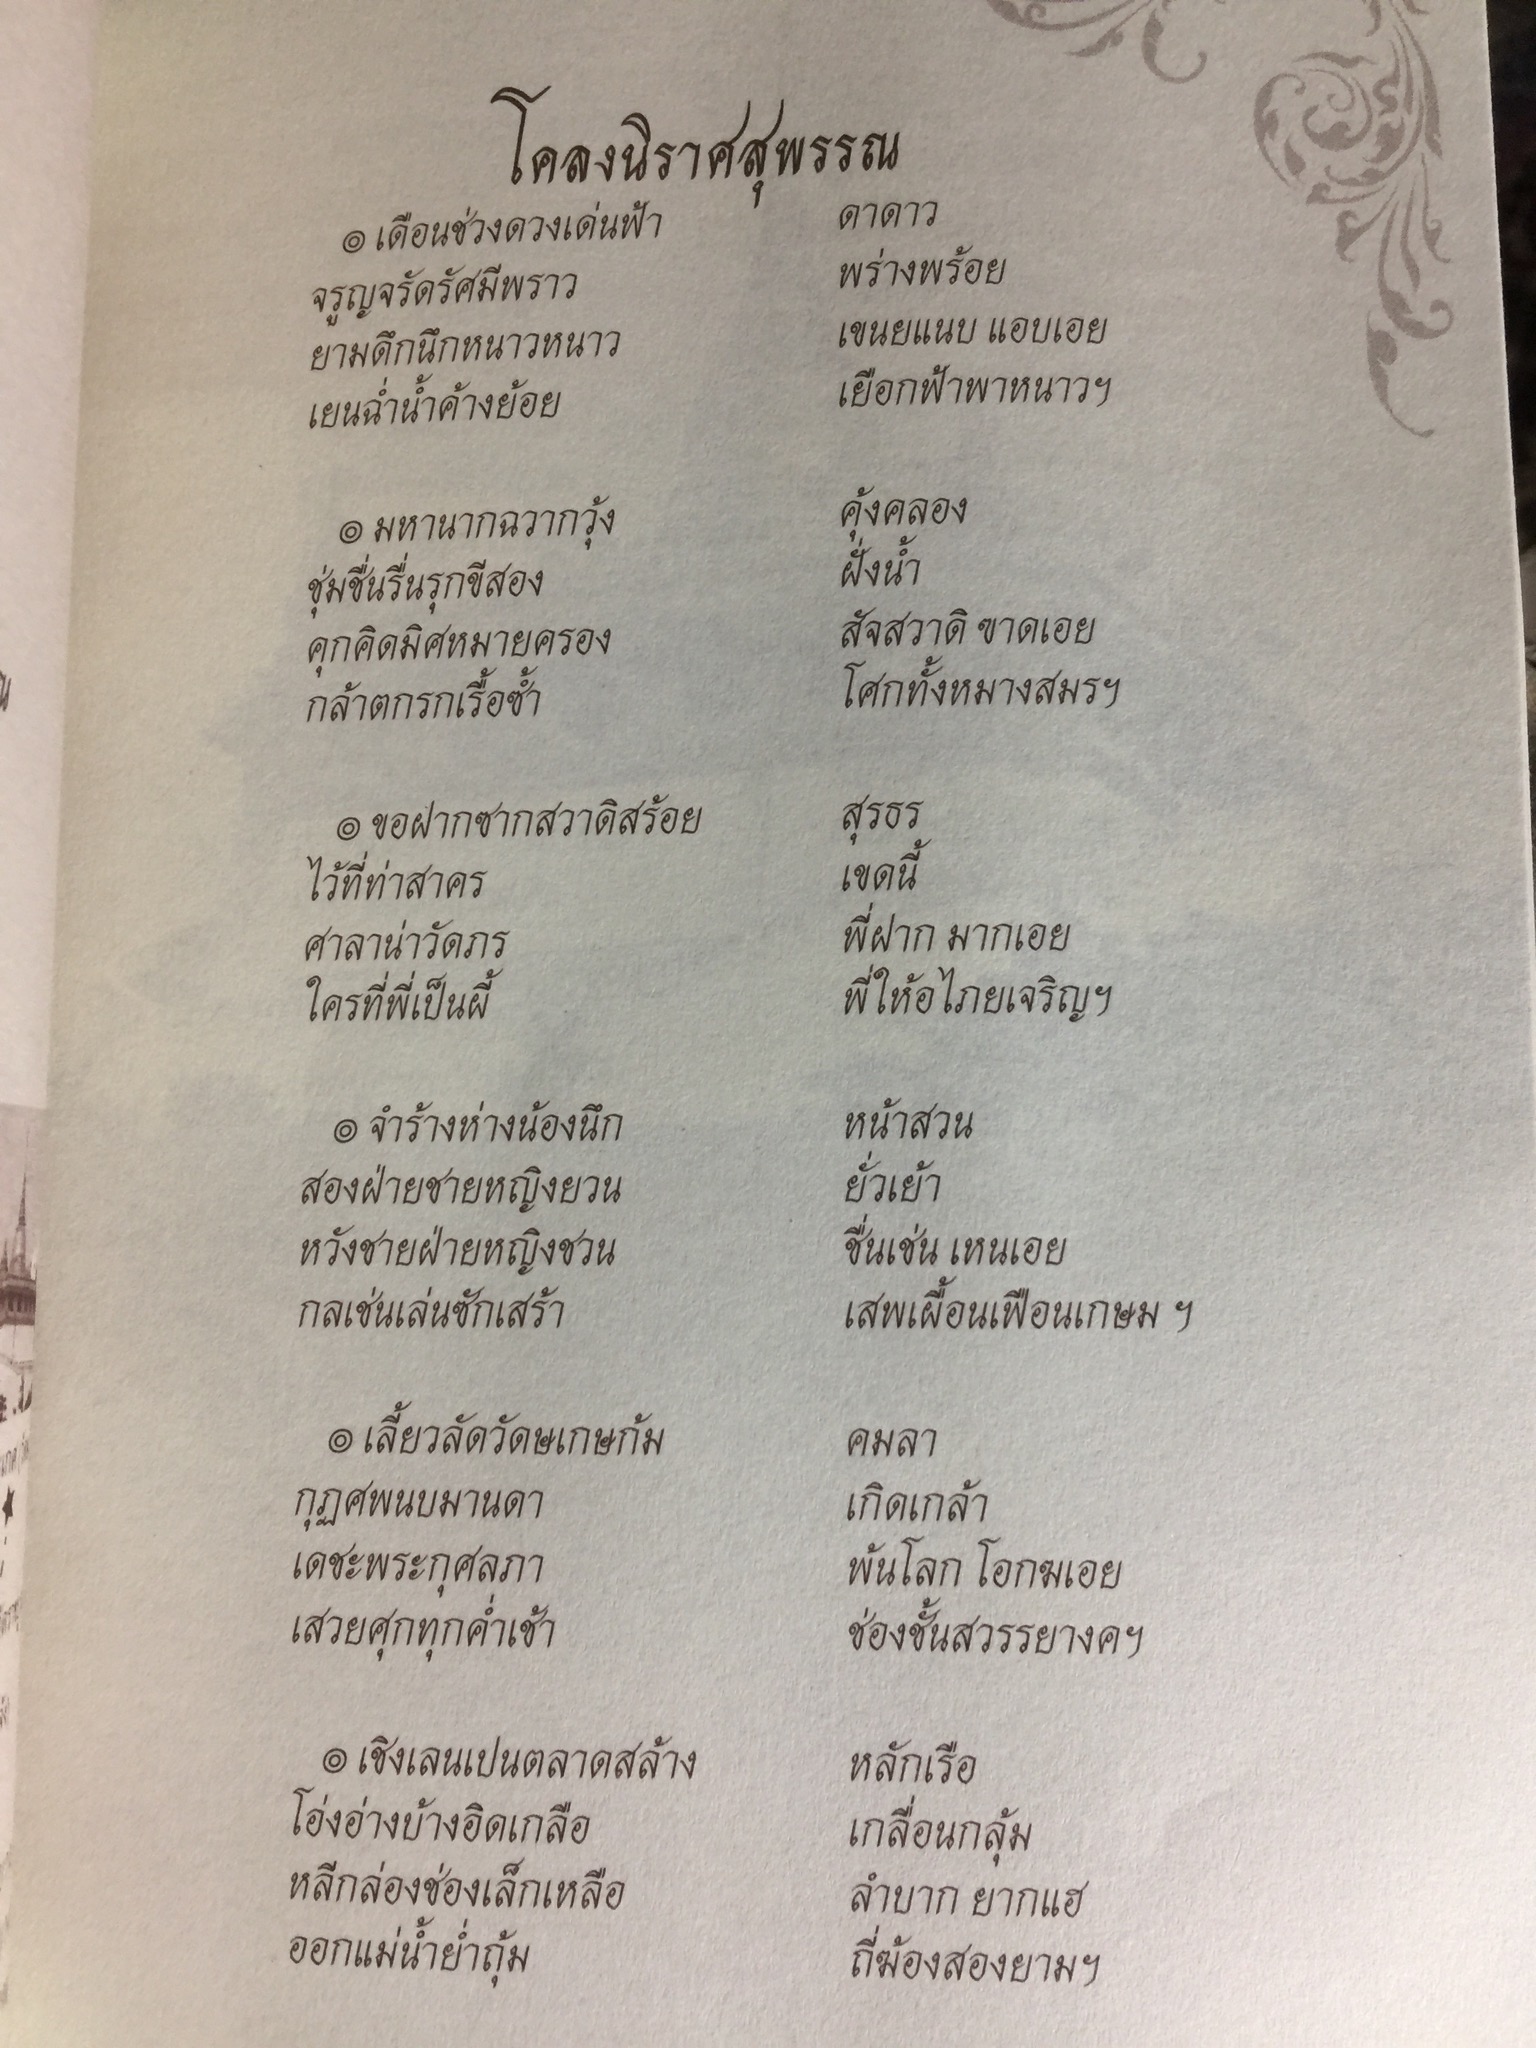 โคลงนิราศสุพรรณ
๏ เดือนช่วงดวงเด่นฟ้า ดาดาว
จรูญจรัดรัศมีพราว พร่างพร้อย
ยามดึกนึกหนาวหนาว เขนยแนบ แอบเอย
เยนฉ่ำน้ำค้างย้อย เยือกฟ้าพาหนาวฯ
๏ มหานากฉวากวุ้ง คุ้งคลอง
ชุ่มชื่นรื่นรุกขีสอง ฝั่งน้ำ
คุกคิดมิศหมายครอง สัจสวาดิ ขาดเอย
กล้าตกรกเรื้อซ้ำ โศกทั้งหมางสมรฯ
๏ ขอฝากซากสวาดิสร้อย สุรธร
ไว้ที่ท่าสาคร เขดนี้
ศาลาน่าวัดภร พี่ฝาก มากเอย
ใครที่พี่เป็นผี้ พี่ให้อไภยเจริญฯ
๏ จำร้างห่างน้องนึก หน้าสวน
สองฝ่ายชายหญิงยวน ยั่วเย้า
หวังชายฝ่ายหญิงชวน ชื่นเช่น เหนเอย
กลเช่นเล่นซักเสร้า เสพเผื้อนเฟือนเกษม ฯ
๏ เลี้ยวลัดวัดษเกษก้ม คมลา
กุฏศพนบมานดา เกิดเกล้า
เดชะพระกุศลภา พ้นโลก โอกฆเอย
เสวยศุกทุกค่ำเช้า ช่องชั้นสวรรยางคฯ
๏ เชิงเลนเปนตลาดสล้าง หลักเรือ
โอ่งอ่างบ้างอิดเกลือ เกลื่อนกลุ้ม
หลีกล่องช่องเล็กเหลือ ลำบาก ยากแฮ
ออกแม่น้ำย่ำถุ้ม ถี่ฆ้องสองยามฯ